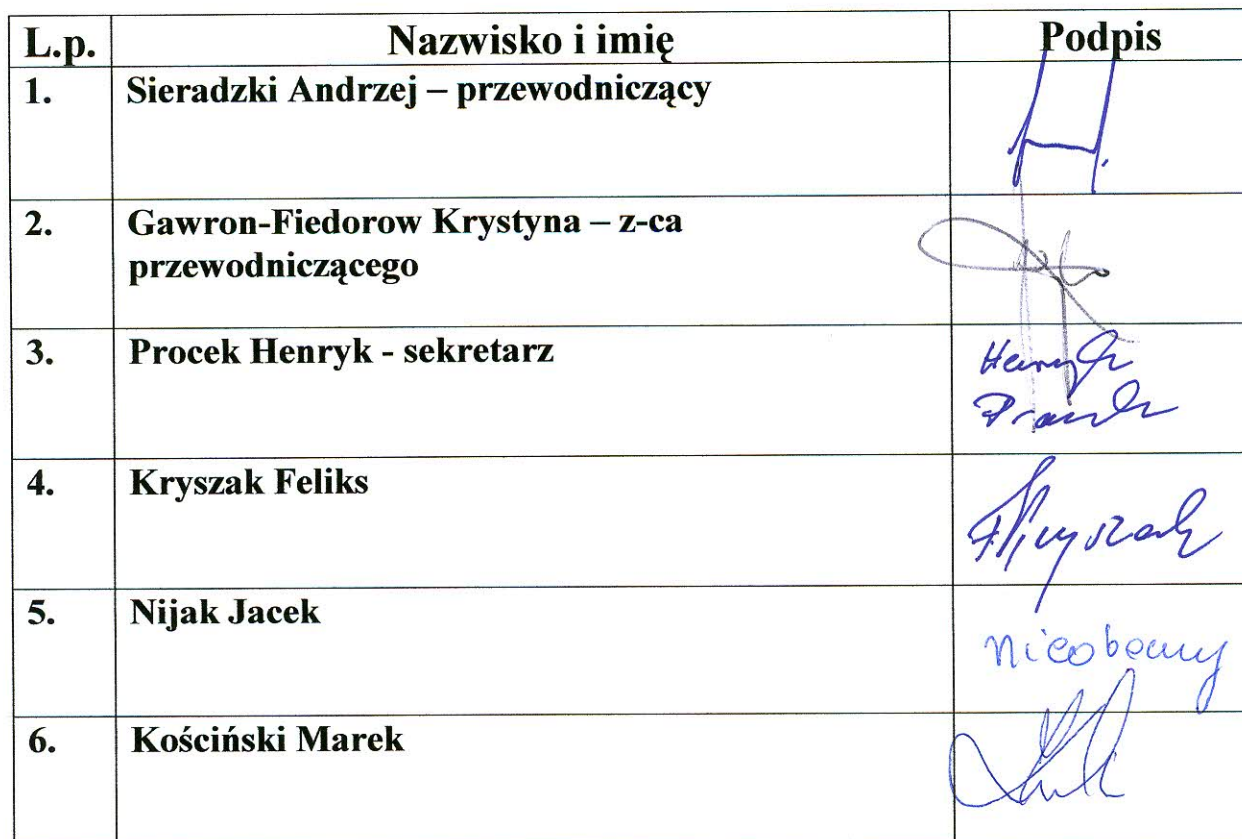 L.p. Nazwisko i imię Podpis
1. Sieradzki Andrzej – przewodniczący
2. Gawron-Fiedorow Krystyna – z-ca
przewodniczącego
3. Procek Henryk - sekretarz
Henryk
Procek
4. Kryszak Feliks
FKryszak
5. Nijak Jacek
nieobecny
6. Kościński Marek